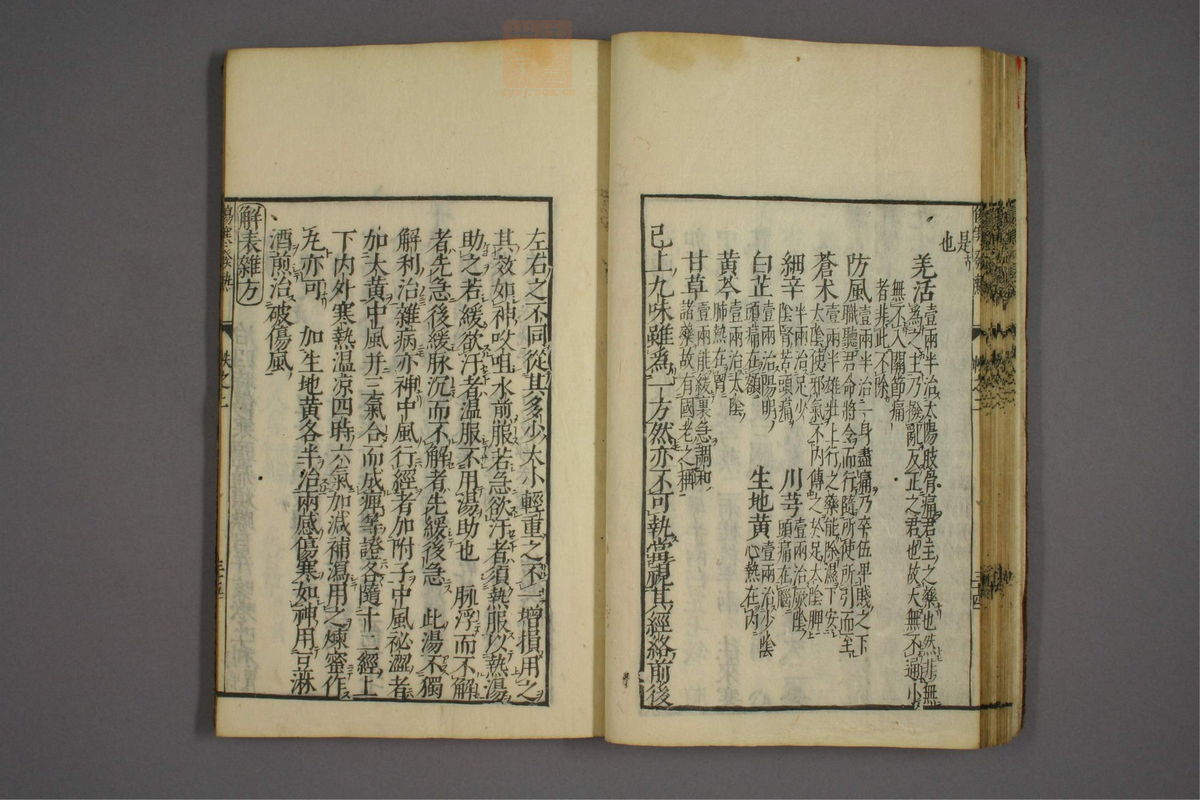 是
也
羌活 壹兩半治太陽肢骨痛君主之藥也然非無
爲之主乃撥亂反正之君也故大無不通小
無不入關節痛
者非此不除
防風 壹兩半治一身盡痛乃卒伍卑賤之下
職聽君命將令而行隨所使所引而至
蒼朮 壹兩半雄壯上行之藥能除濕下安
太陰使邪氣不內傳之於足太陰脾
細辛 半兩治足少
陰腎苦頭痛
川芎 壹兩治厥陰
頭痛在腦
白芷 壹兩治陽明
頭痛在額
生地黃 壹兩治少陰
心熱在內
黃芩 壹兩治太陰
肺熱在胷
甘草 壹兩能緩裏急調和
諸藥故有國老之稱
已上九味雖為一方然亦不可執當視其經絡前後
左右之不同從其多少大小輕重之不一增損用之
其效如神㕮咀水煎服若急欲汗者須熱服以熱湯
助之若緩欲汗者溫服不用湯助也 脉浮而不解
者先急後緩脉沉而不解者先緩後急 此湯不獨
解利治雜病亦神中風行經者加附子中風祕澀者
加大黃中風并三氣合而成痺等證各隨十二經上
下內外寒熱温凉四時六氣加減補瀉用之煉蜜作
丸亦可 加生地黃各半治兩感傷寒如神用豆淋
酒煎治破傷風
解表雜方